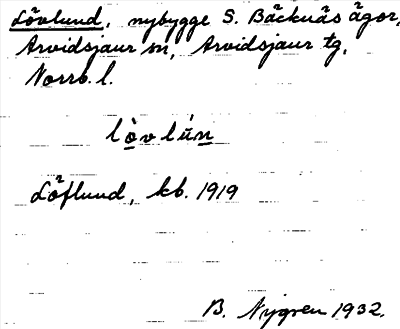 Lövlund, nybygge S. Bäcknäs ägor,
Arvidsjaur sn, Arvidsjaur tg,
Norrb. l.
lòvlún
Löflund, kb. 1919
B. Nygren 1932.